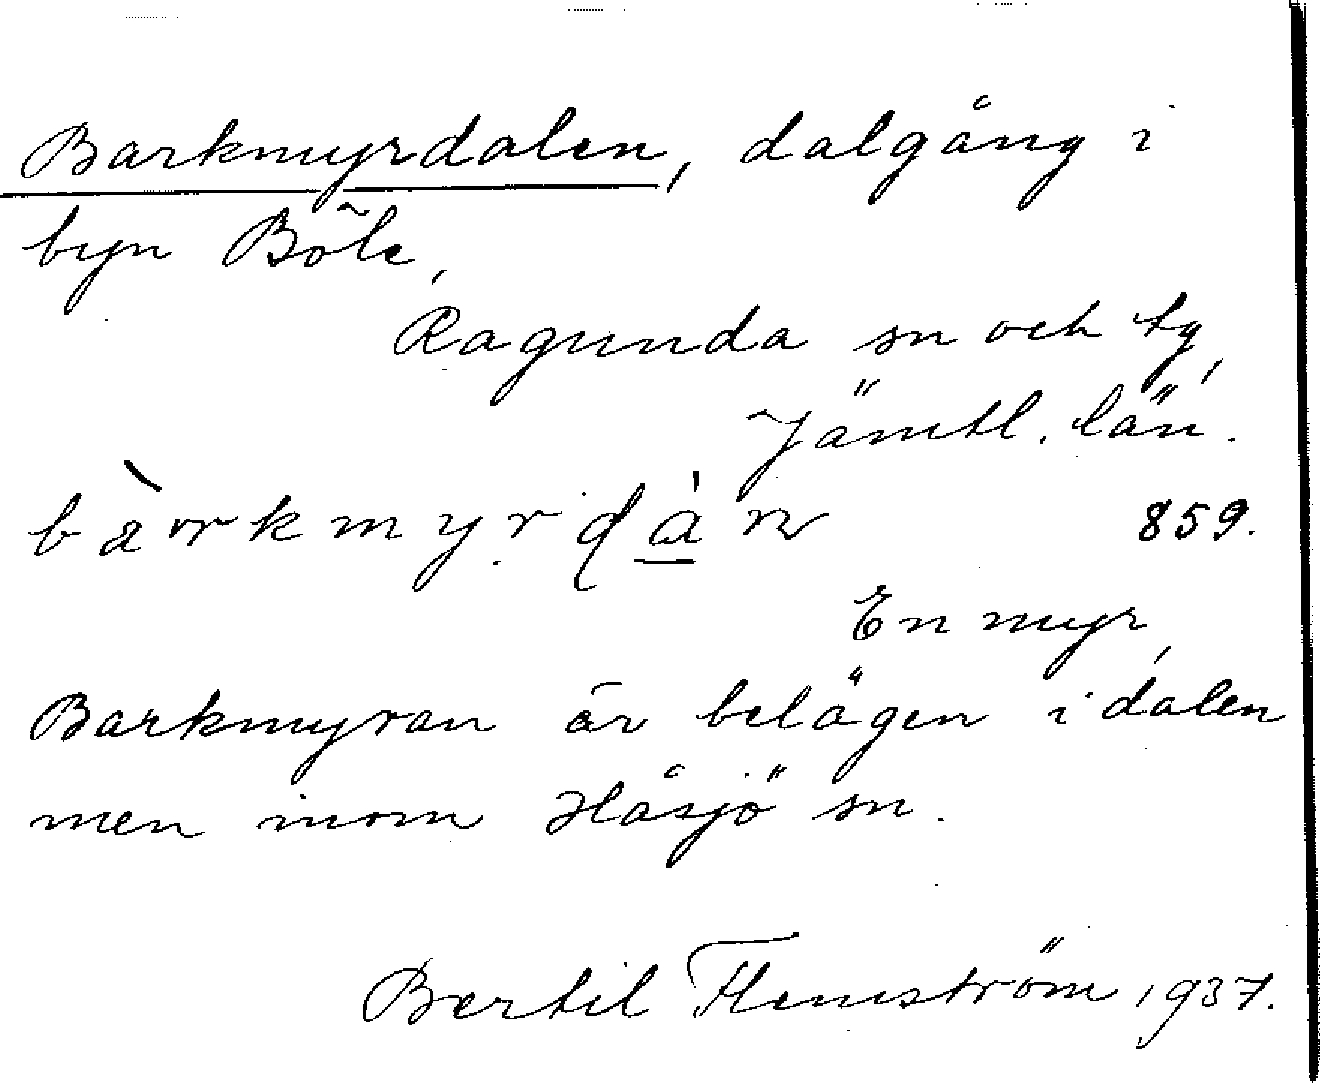 Barkmyrdalen, dalgång i
byn Böle,
Ragunda sn och tg,
Jämtl. län.
bàrkmyrdán 859.
En myr,
Barkmyran är belägen i dalen
men inom Håsjö sn.
Bertil Flemström 1937.